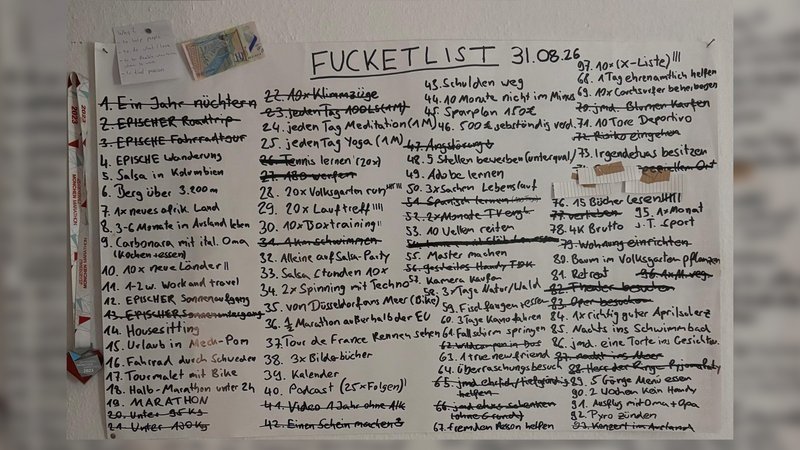 Why?
FUCKETLIST 31.08.26
1. Ein Jahr nüchtern
2. EPISCHER Roadtrip
3. EPISCHE Fahrradtour
4. EPISCHE Wanderung
5. Salsa in Kolumbien
6. Berg über 3.200m
7. 1x neues afrik. Land
8. 3-6 Monate im Ausland leben
9. Carbonara mit ital. Oma
(Kochen + essen)
10. 10x neue Länder II
11. 1-2 w. Work and travel
12. EPISCHER Sonnenaufgang
13. EPISCHER Sonnenuntergang
14. Housesitting
15. Urlaub in Meck-Pom
16. Fahrrad durch Schweden
17. Tourmalet mit Bike
18. Halb-Marathon unter 2h
19. MARATHON
20. Unter 95 Kg
21. Unter 100 Kg
22. 10x Klimmzüge
23. jeden Tag 100 LS (1M)
24. jeden Tag Meditation (1M)
25. jeden Tag Yoga (1M)
26. Tennis lernen (20x)
27. 180 werfen
28. 20x Volksgarten run
29. 20x Lauftreff IIII
30. 10x Boxtraining II
31. 1 km schwimmen
32. Alleine auf Salsa-Party
33. Salsa Stunden 10x
34. 2x Spinning mit Techno
35. von Düsseldorf ans Meer (Bike)
36. ½ Marathon außerhalb der EU
37. Tour de France Rennen sehen
38. 3x Bilderbücher
39. Kalender
40. Podcast (25x Folgen) I
41. Video 1 Jahr ohne Alk
42. Einen Schein machen
43. Schulden weg
44. 10 Monate nicht im Minus
45. Sparplan 150€
46. 500€ selbständig verd.
47. Angstörung
48. 5 Stellen bewerben (unterqual)
49. Adobe lernen
50. 3x Sachen Lebenslauf
51. Spanisch lernen
52. 2x Monate TV weg
53. 10 Wellen reiten
55. Master machen
56. geileiles Handy TDK
57. Kamera kaufen
58. 3x Tage Natur/Wald
59. Fisch fangen + essen
60. 3 Tage Kanu fahren
61. Fallschirm springen
62. Wildcampen in Dos
63. 1 true new friend
64. Überraschungsbesuch
65. jmd. ehrlich / tiefgründig
helfen
66. jmd. etwas schenken
(ohne Grund)
67. fremden Person helfen
97. 10x (X-Liste) III
68. 1 Tag ehrenamtlich helfen
69. 10x Couchsurfer beherbergen
70. jmd. Blumen kaufen
71. 10 Tore Deportivo
72. Risiko eingehen
73. Irgendetwas besitzen
speziellen Ort
76. 15 Bücher lesen
77. verloben 95. 1x Monat
78. 4K Brutto J.T. Sport
79. Wohnung einrichten
80. Baum im Volksgarten pflanzen
81. Retreat 96. 1x M. weg
82. Theater besuchen
83. Oper besuchen
84. 1x richtig guter Aprilscherz
85. Nachts ins Schwimmbad
86. jmd. eine Torte ins Gesicht
87. nackt ins Meer
88. Herr der Ringe Pyjamaparty
89. 5 Gänge Menü essen
90. 2 Wochen kein Handy
91. Ausflug mit Oma + Opa
92. Pyro zünden
93. Konzert im Ausland
2023
2023